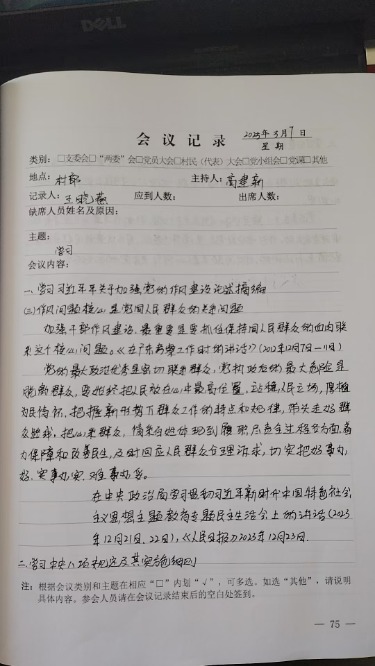 会议记录 2025年5月7日
星期
类别：□支委会□“两委”会□党员大会□村民（代表）大会□党小组会□党课□其他
地点：村部 主持人：高建新
记录人：王晓燕 应到人数： 出席人数：
缺席人员姓名及原因：
主题：
学习
会议内容：
一、学习习近平关于加强党的作风建设论述摘编
(三)作风问题核心是党同人民群众的关系问题
加强干部作风建设，最重要是要抓住保持同人民群众的血肉联
系这个核心问题。《在广东考察工作时的讲话》(2012年12月7日—11日)
党的最大政治优势是密切联系群众，党执政后的最大危险是
脱离群众，要始终把人民放在心中最高位置，站稳人民立场，厚植
为民情怀，把握新形势下群众工作的特点和规律，带头走好群
众路线，把心系群众、情系百姓体现到履职尽责全过程各方面，着
力保障和改善民生，及时回应人民群众合理诉求，切实把好事办
好、实事办实、难事办妥。
在中央政治局学习贯彻习近平新时代中国特色社会
主义思想主题教育专题民主生活会上的讲话(2023
年12月21日、22日)，《人民日报》2023年12月23日
二、学习中央八项规定及其实施细则
注：根据会议类别和主题在相应“□”内划“√”，可多选。如选“其他”，请说明
具体内容。参会人员请在会议记录结束后的空白处签到。
— 75 —